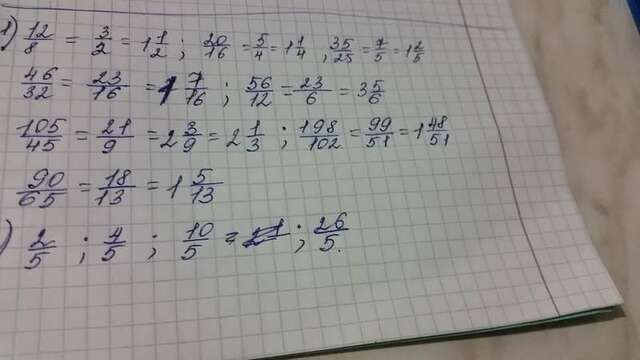 1) 12/8 = 3/2 = 1 1/2 ; 20/16 = 5/4 = 1 1/4 ; 35/25 = 7/5 = 1 2/5
46/32 = 23/16 = 1 7/16 ; 56/12 = 23/6 = 3 5/6
105/45 = 21/9 = 2 3/9 = 2 1/3 ; 198/102 = 99/51 = 1 48/51
90/65 = 18/13 = 1 5/13
) 2/5 ; 4/5 ; 10/5 = ; 26/5